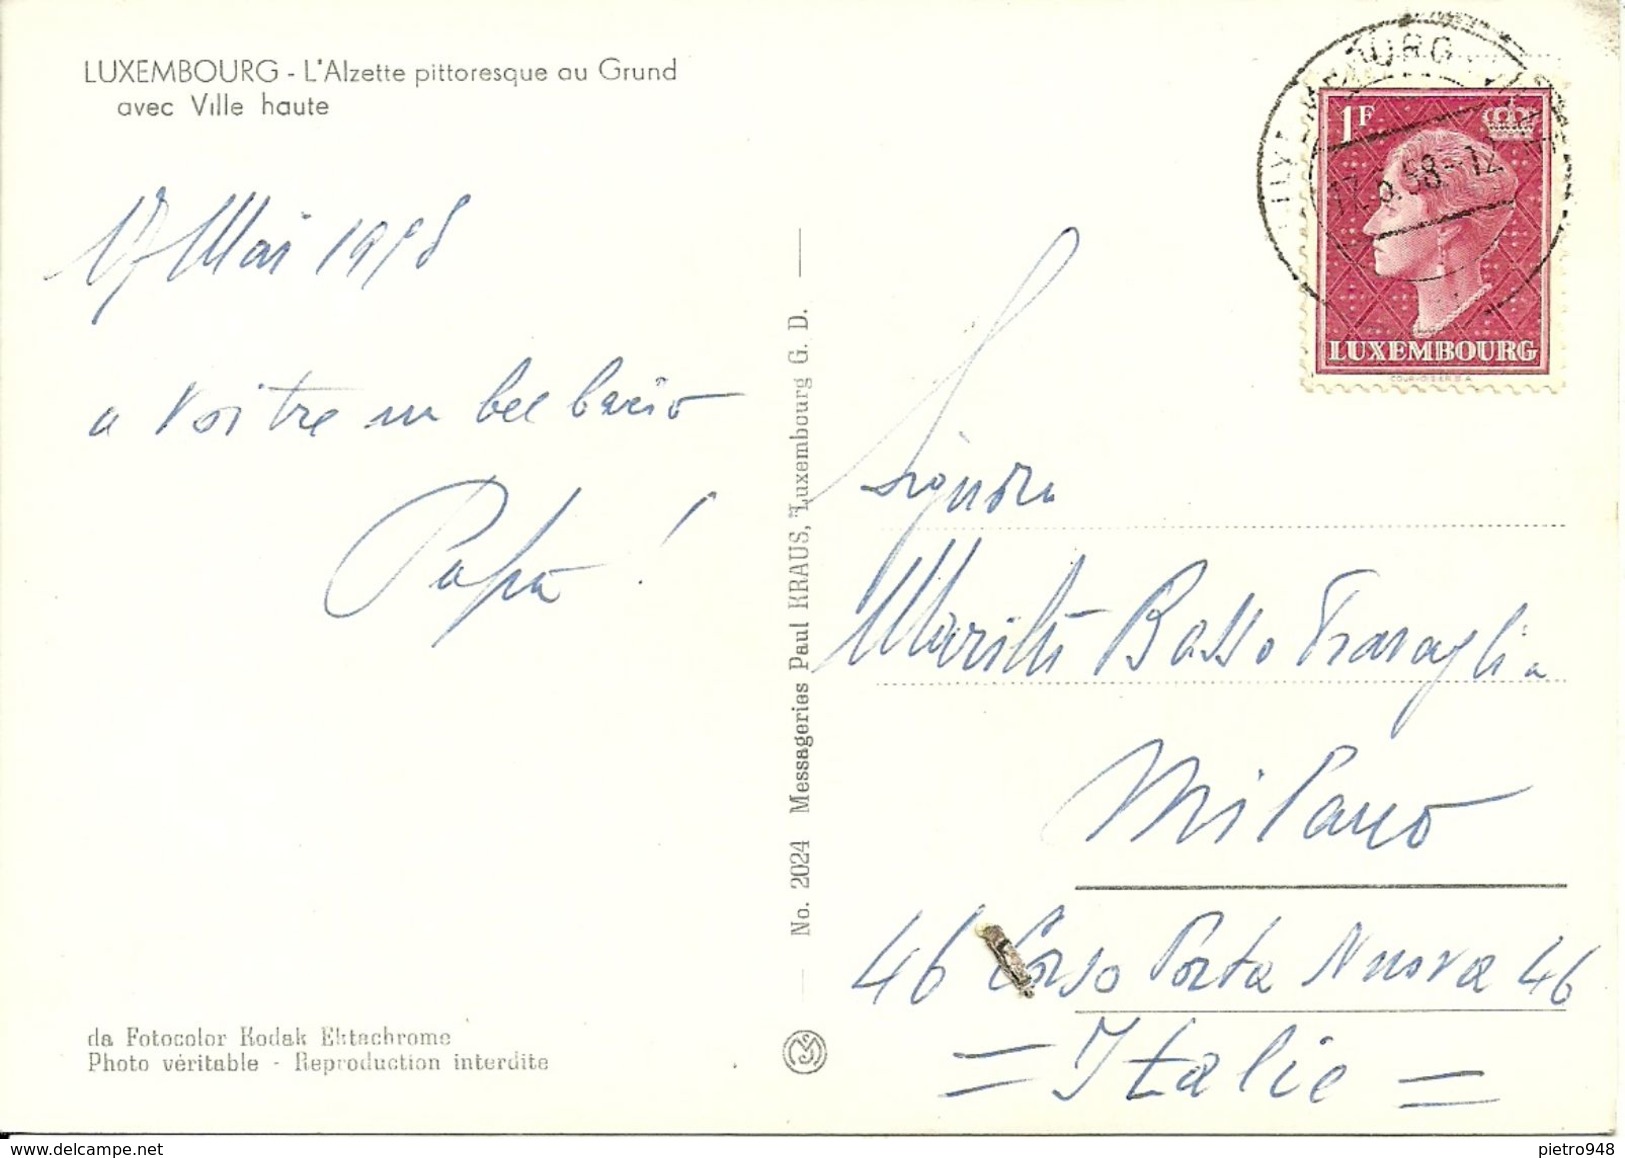 LUXEMBOURG - L'Alzette pittoresque au Grund
avec Ville haute
17 Mai 1958
a Voi tre un bel bacio
Papà!
No. 2024 Messageries Paul KRAUS, Luxembourg G. D.
da Fotocolor Kodak Ektachrome
Photo véritable - Reproduction interdite
LUXEMBOURG
17.5.58.-12
1F
LUXEMBOURG
COURVOISIER S.A.
Signora
Basso Travaglia
Milano
46 Corso Porta Nuova 46
= Italie =
pietro948